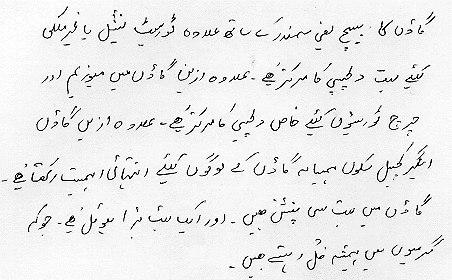 گاؤں کا بیچ یعنی سمندر کے ساتھ علاوہ ٹورسٹ نیشنل یا غیر ملکی
کیلئے بہت دلچسپی کا مرکز ہے۔ علاوہ ازیں گاؤں میں میوزیم اور
چرچ ٹورسٹوں کیلئے خاص دلچسپی کا مرکز ہے۔ علاوہ ازیں گاؤں
سکول ہسپانیہ گاؤں کے لوگوں کیلئے انتہائی اہمیت رکھتا ہے۔
گاؤں میں بہت سی ہیں۔ اور ایک بہت بڑا ہوٹل ہے۔ جو کہ
گرمیوں میں ہمیشہ فل رہتے ہیں۔